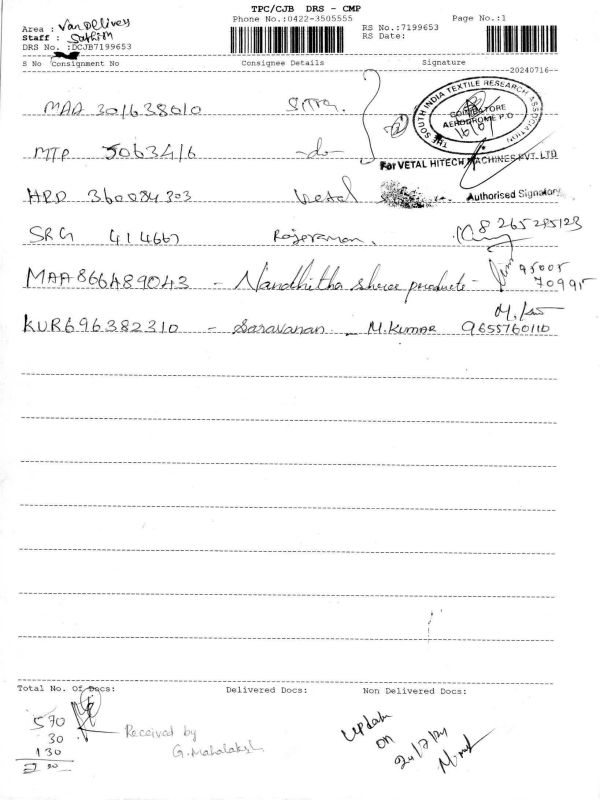 TPC/CJB DRS - CMP
Area : Van Delivery
Phone No.:0422-3505555
Page No.:1
Staff : Sathish
RS No.:7199653
RS Date:
DRS No. :DCJB7199653
S No Consignment No Consignee Details Signature
20240716
MAA 301638010 SITRA.
THE SOUTH INDIA TEXTILE RESEARCH ASSOCIATION
COIMBATORE
AERODROME P.O
16/07
MTP 5063416 -do-
For VETAL HITECH MACHINES PVT. LTD
HRD 360084303 Vetal
Authorised Signatory
SRG 414667 Rajeraman. 8 265285123
MAA866489043 - Nandhitha shree products - 95005
70995
KUR696382310 - Saravanan - M.Kumar 9655760110
Total No. Of Docs: Delivered Docs: Non Delivered Docs:
570
30
130
Received by
G.Mahalakshi
Update
on
24/7/24